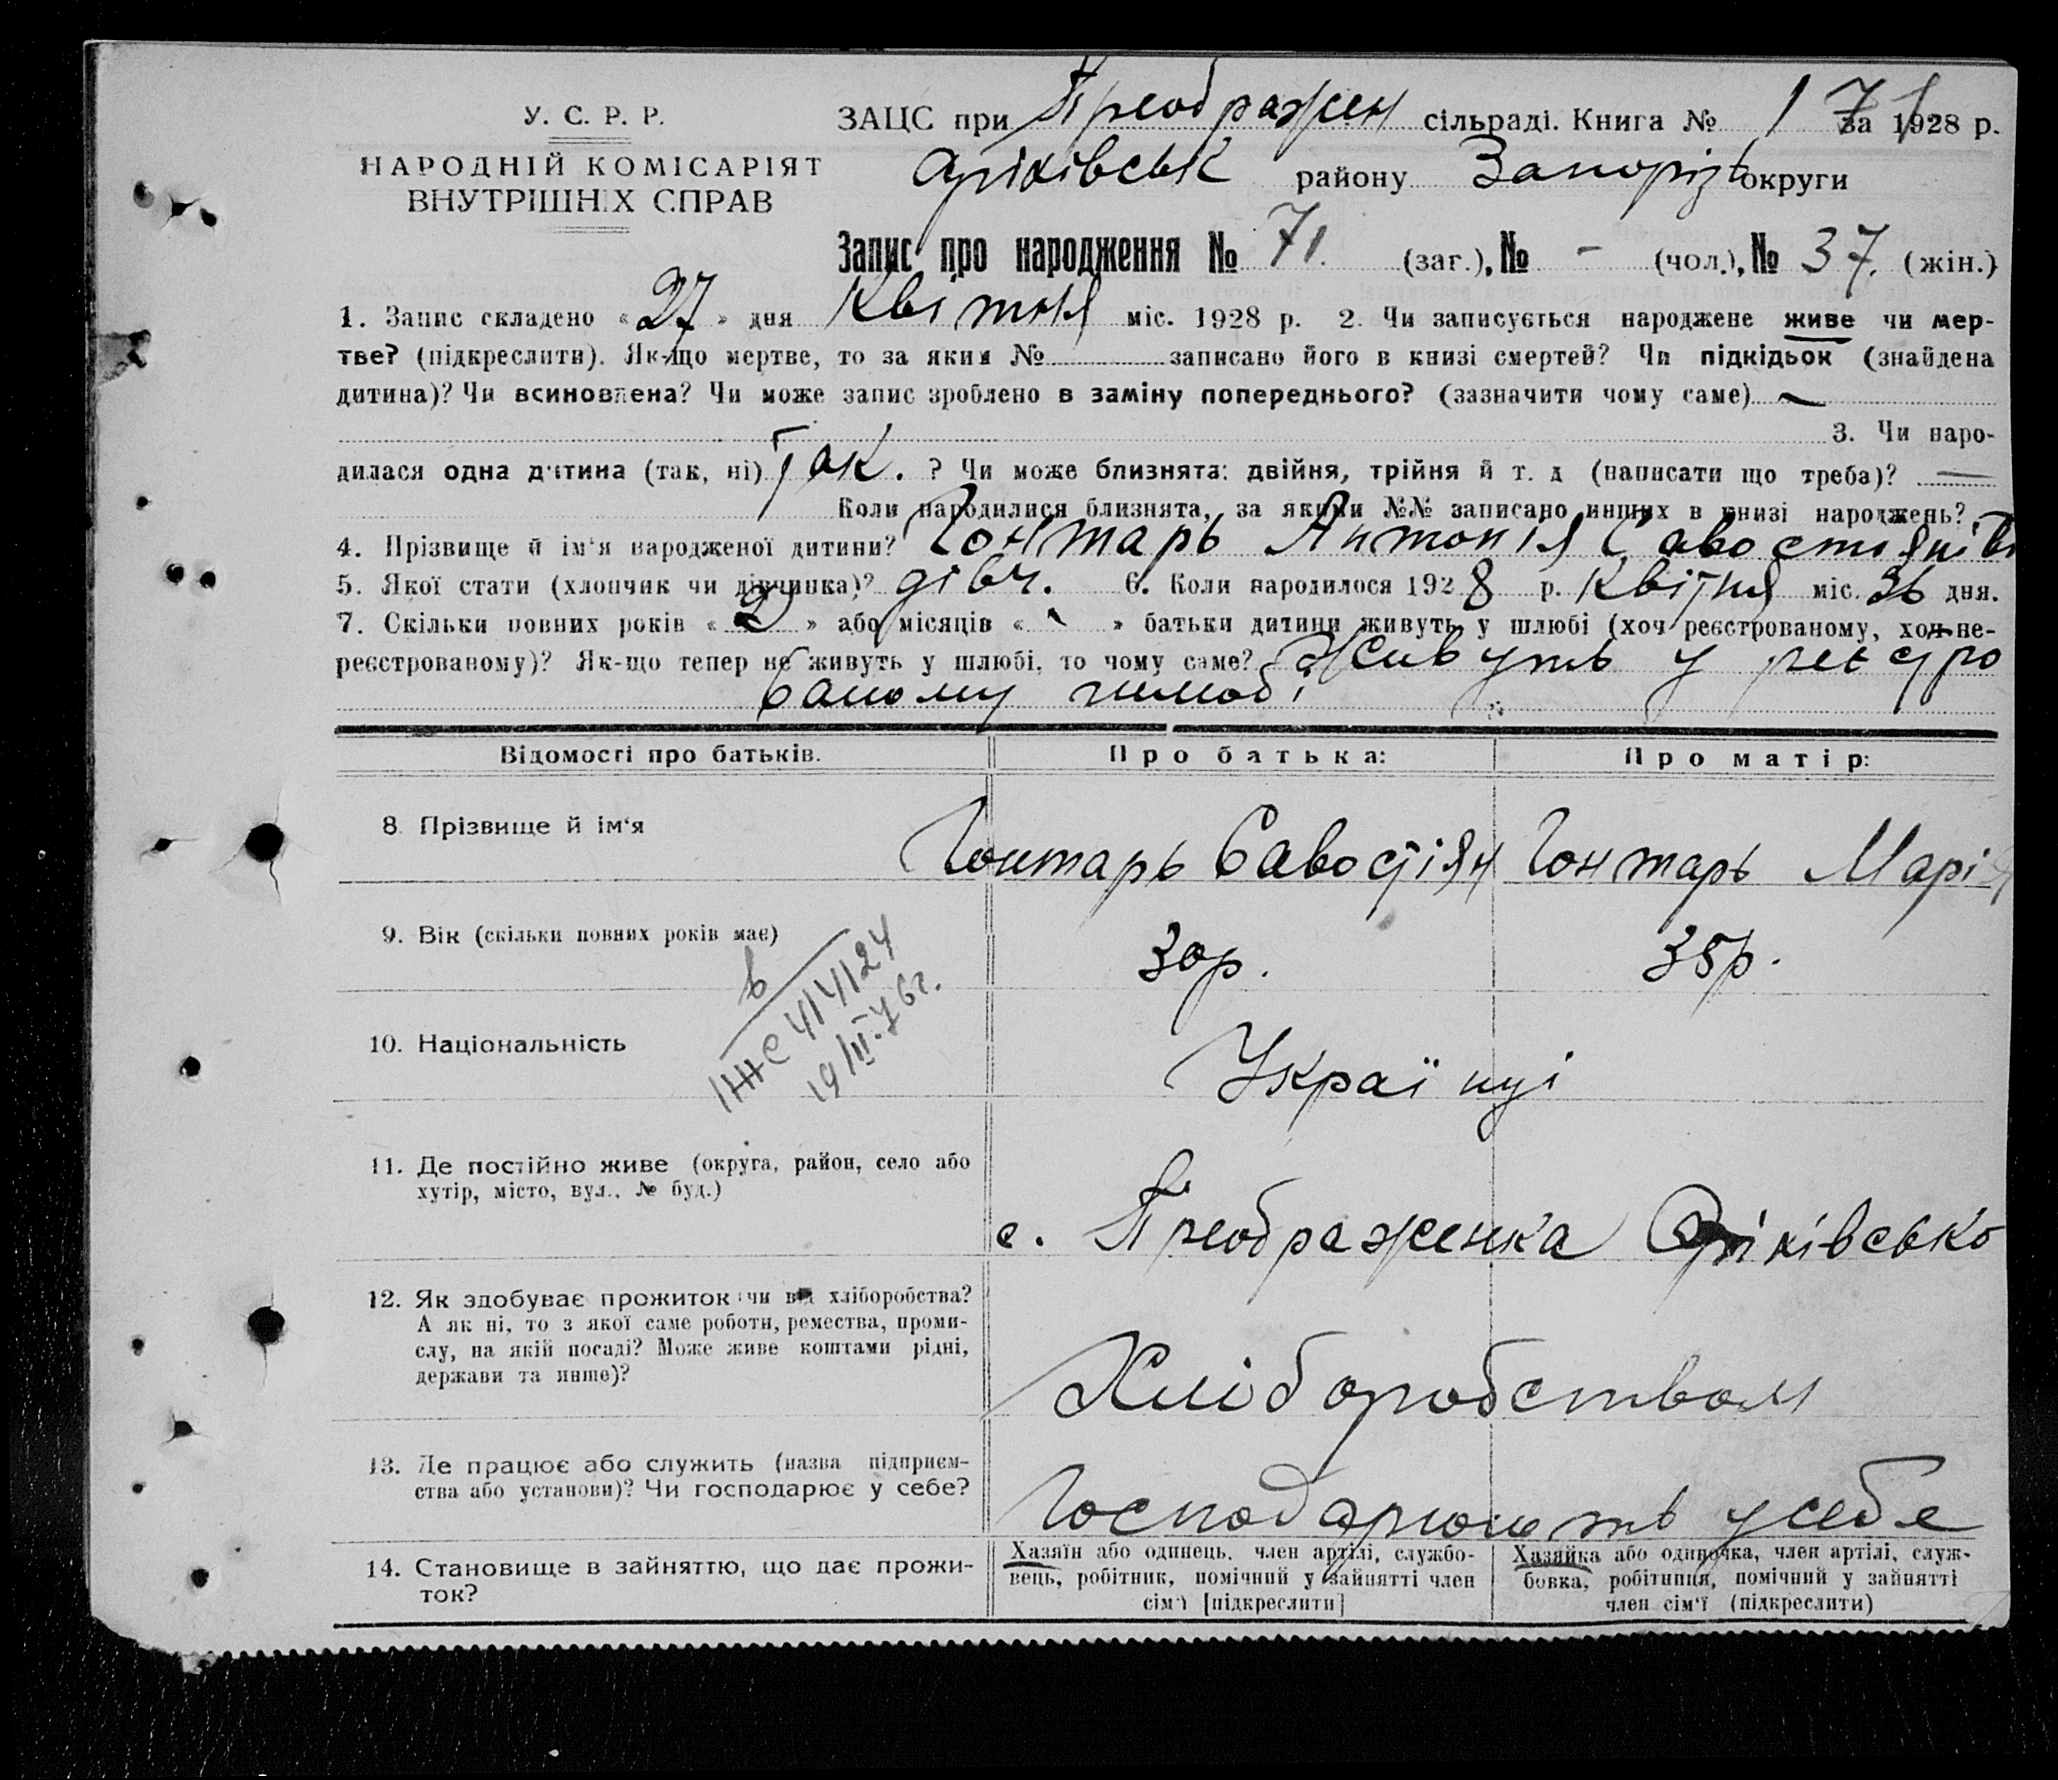 У. С. Р. Р.
НАРОДНІЙ КОМІСАРІЯТ
ВНУТРІШНІХ СПРАВ
ЗАЦС при Преображен сільраді. Книга № 1 71 за 1928 р.
Оріхівськ району Запоріз округи
Запис про народження № 71. (заг.), № - (чол.), № 37. (жін.)
1. Запис складено «27» дня Квітня міс. 1928 р. 2. Чи записується народжене живе чи мер-
тве? (підкреслити). Як-що мертве, то за яким № записано його в книзі смертей? Чи підкідьок (знайдена
дитина)? Чи всиновлена? Чи може запис зроблено в заміну попереднього? (зазначити чому саме) —
3. Чи наро-
дилася одна дитина (так, ні) Так. ? Чи може близнята: двійня, трійня й т. д (написати що треба)? —
Коли народилися близнята, за якими №№ записано инших в книзі народжень?
4. Прізвище й ім'я народженої дитини? Гонтарь Антонія Савостиянів
5. Якої стати (хлопчик чи дівчинка)? дівч. 6. Коли народилося 1928 р. Квітня міс. дня.
7. Скільки повних років «2» або місяців « » батьки дитини живуть у шлюбі (хоч реєстрованому, хоч не-
реєстрованому)? Як-що тепер не живуть у шлюбі, то чому саме? Живуть у реєстро
ваному шлюбі
Відомості про батьків.
Про батька:
Про матір:
8. Прізвище й ім'я
Гонтарь Савостіян
Гонтарь Марія
9. Вік (скільки повних років має)
30р.
35р.
в
ІЖС 414124
19/II.76г.
10. Національність
Українці
11. Де постійно живе (округа, район, село або
хутір, місто, вул., № буд.)
с. Преображенка Оріхівсько
12. Як здобуває прожиток: чи від хліборобства?
А як ні, то з якої саме роботи, ремества, проми-
слу, на якій посаді? Може живе коштами рідні,
держави та инше)?
Хліборобством
13. Де працює або служить (назва підприєм-
ства або установи)? Чи господарює у себе?
Господарюють у себе
14. Становище в зайняттю, що дає прожи-
ток?
Хазяїн або одинець, член артілі, службо-
вець, робітник, помічний у зайнятті член
сім'ї [підкреслити]
Хазяйка або одиночка, член артілі, служ-
бовка, робітниця, помічний у зайнятті
член сім'ї (підкреслити)